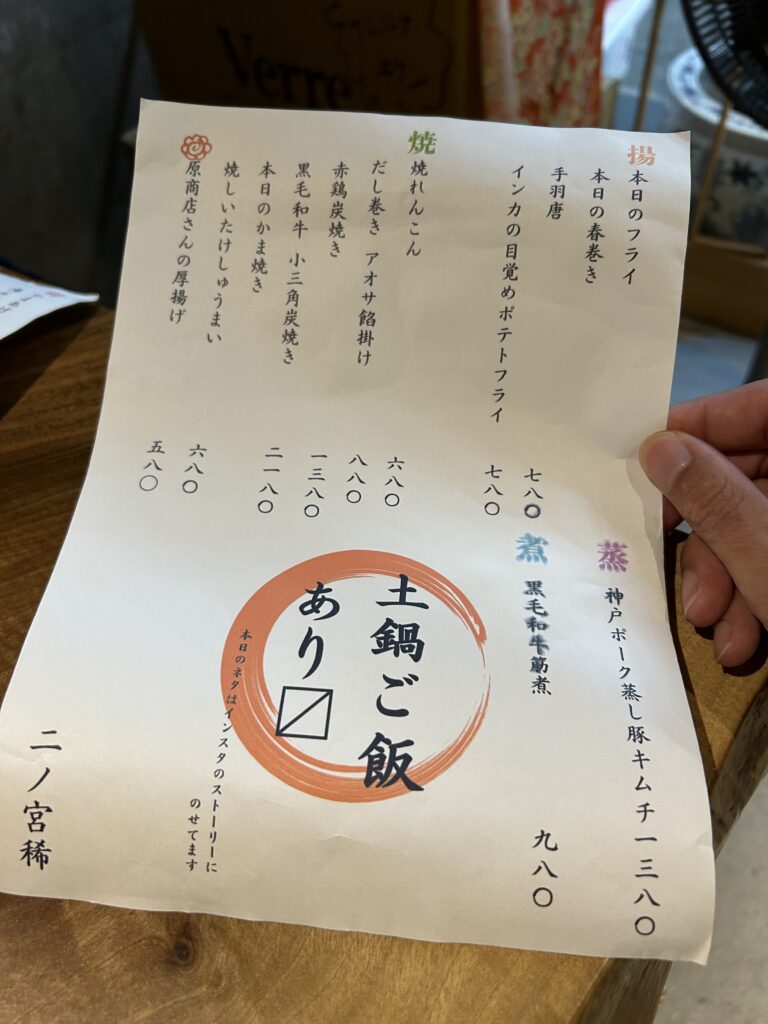 揚
本日のフライ
本日の春巻き
手羽唐 七八〇
インカの目覚めポテトフライ 七八〇
焼
焼れんこん 六八〇
だし巻き アオサ餡掛け 八八〇
赤鶏炭焼き 一三八〇
黒毛和牛 小三角炭焼き 二一八〇
本日のかま焼き
焼しいたけしゅうまい 六八〇
原商店さんの厚揚げ 五八〇
蒸
神戸ポーク蒸し豚キムチ 一三八〇
煮
黒毛和牛筋煮 九八〇
土鍋ご飯
あり〼
本日のネタはインスタのストーリーに
のせてます
二ノ宮稀
Verre